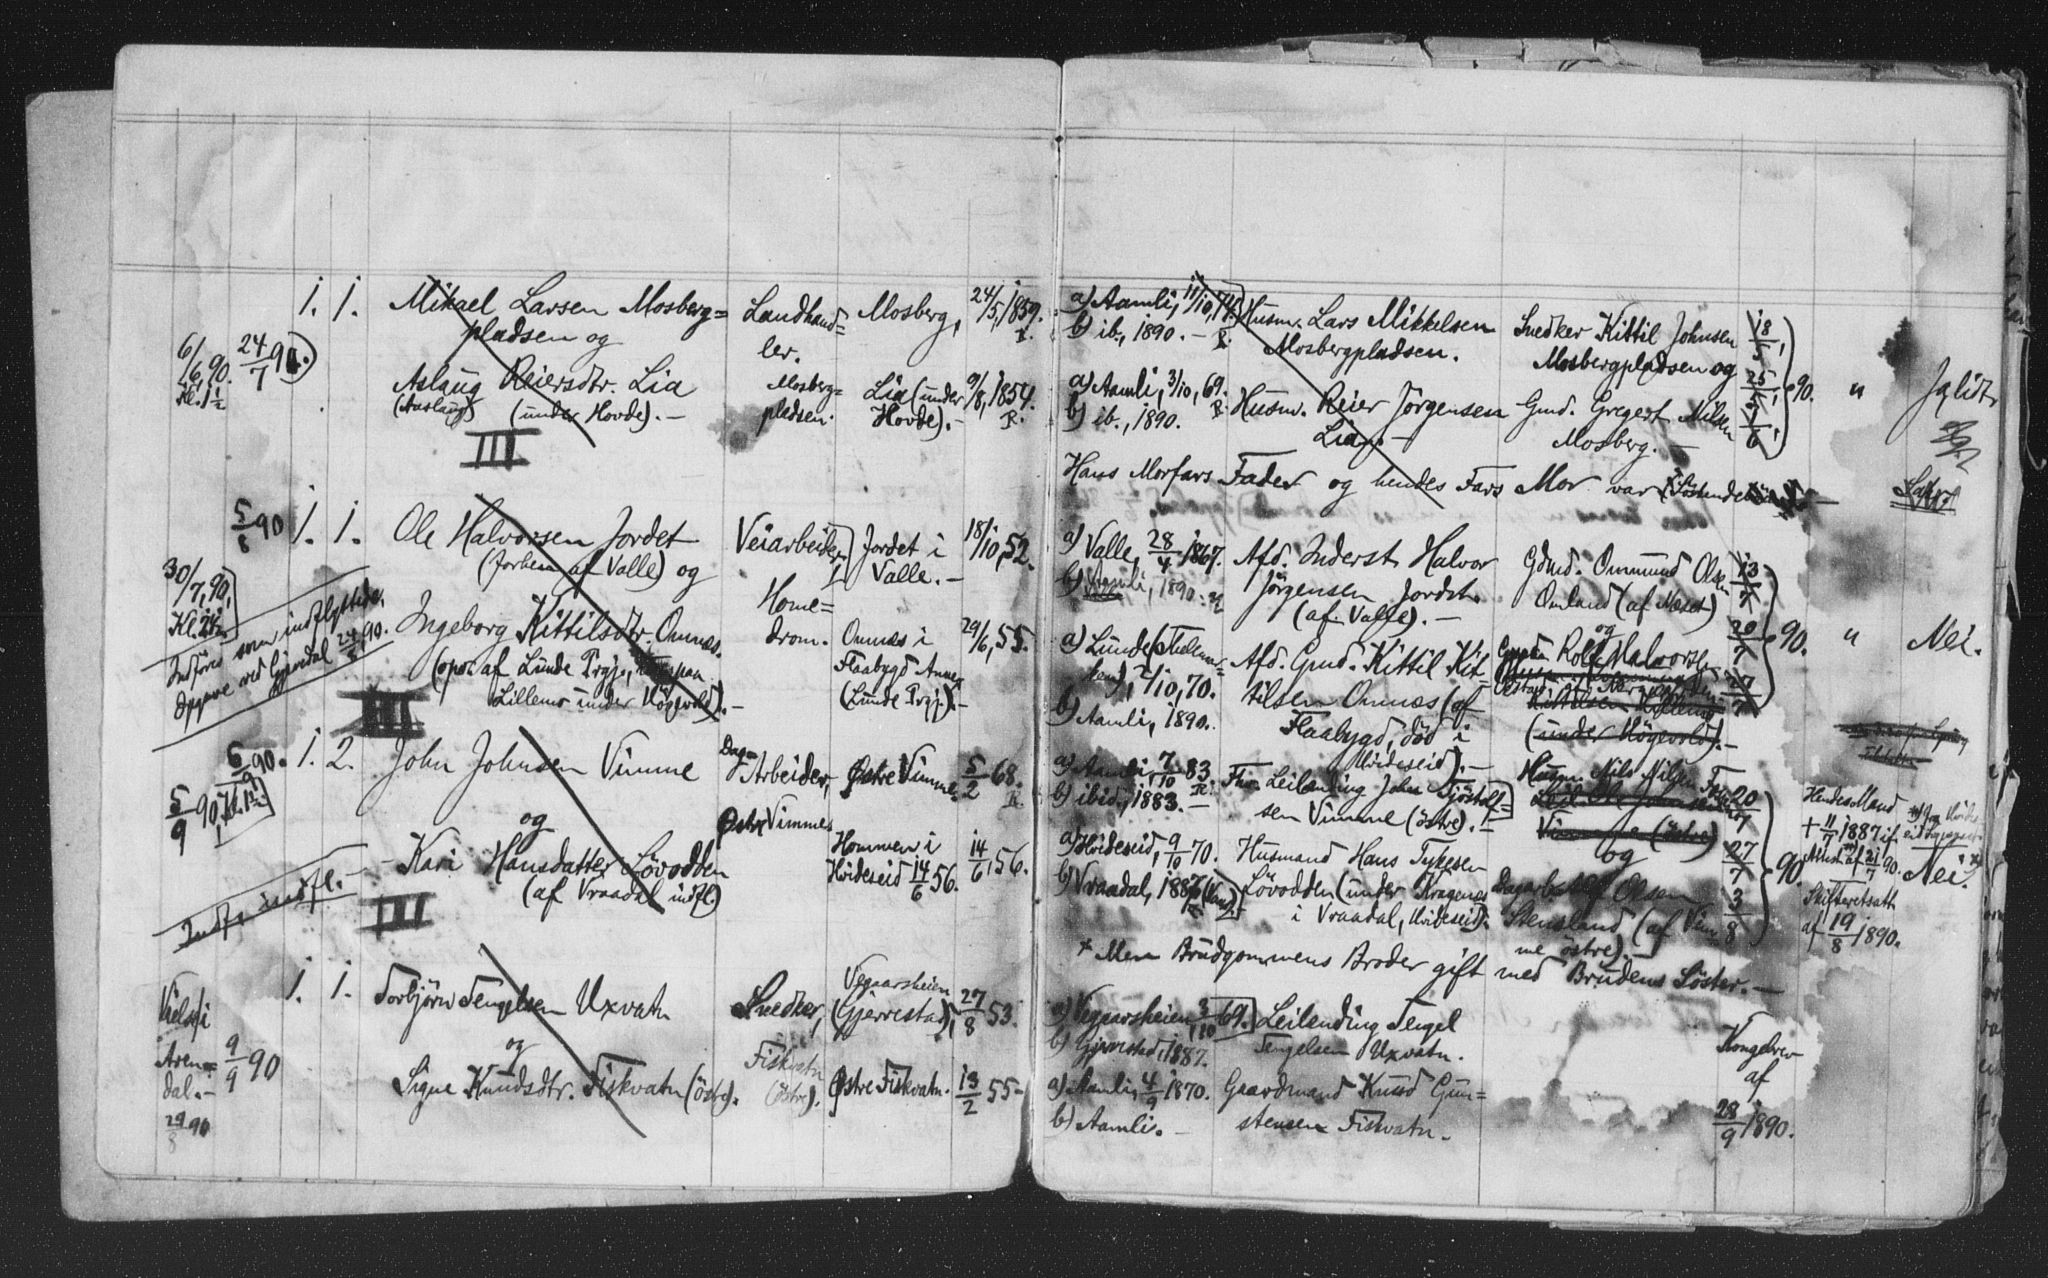 1. 1. Mikael Larsen Mosberg= Landhand= Mosberg, 24/5, 1859.
pladsen og ler.
6/6, 90. 24/7 90. Aslaug Reiersdtr. Lia Mosberg= Lia (under 9/8, 1854.
Kl. 1 1/2 (Aaslaug) (under Hovde). – pladsen. Hovde). – R.
III
5/8 90 1. 1. Ole Halvorsen Jordet Veiarbeider, Jordet i 18/10, 52.
(Jorden af Valle) og Valle. –
30/7, 90, Home=
Kl. Ingeborg Kittilsdtr. Omnæs. drom. Omnæs i 29/6, 55.
Indføres som indflyttede, (opv. af Lunde Prgj., Flaabygd Annex
Opgave ved Gjøvdal 24/8 90. Lillemo under Høgevold). – (Lunde Prgj). –
III
6/9 90. 1. 2. John Johnsen Vimme Dag=
Arbeider, Østre Vimme. 5/2 68.
5/9 90, og Østre Vimme R.
– Kari Hansdatter Lövodden Hommen i 14/6, 56.
(af Vraadal indfl.) Hvideseid 14/6 56.
Indf. indfl. –
III
1. 1. Torbjörn Tengelsen Uxvatn Snedker, Vegaarsheien
(Gjerrestad), 27/8 53.
Viels. i
Aren= 9/9 90 og Fiskvatn
dal. – Signe Knudsdtr. Fiskvatn (östre). (östre). Østre Fiskvatn. 13/2 55 –
29/8 90
a) Aamli, 11/10, 74. Husm. Lars Mikkelsen Snedker Kittil Johnsen 18/5,
b) ib., 1890. – R. Mosbergpladsen. Mosbergpladsen og
a) Aamli, 3/10, 69. Husm. Reier Jörgensen Gmd. Gregert Nilsen 25/5, 90. " Jglidt
b) ib., 1890. Lia. – Mosberg. – 1/6,
Hans Morfars Fader og hendes Fars Mor var Söskende
a) Valle, 28/4 1867. Afd. Inderst Halvor Gdmd. Ommund Olsen 13/7
b) Aamli, 1890. Jörgensen Jordet. Omland (af Næset)
(af Valle). – og 20/7 90. " Nei.
a) Lunde (Thelemar= Afd. Gmd. Kittil Kit= Rolf Halvorsen
ken), 2/10, 70. tilsen Omnæs (af 27/7
b) Aamli, 1890. Flaabygd, död i (under Högevold). –
Hvideseid). –
a) Aamli, 7/10 83. Leilending John Tjöstolf= Husm. Nils Nilsen 20/7
b) ibid., 1883. – sen Vimme (østre). – Leil. Ole Johnsen
Vimme (østre)
a) Hvideseid, 9/10 70. Husmand Hans Tykesen og 27/7 90.
b) Vraadal, 1887 Lövodden (under Kragenæs Dagarb. Olsen
i Vraadal, Hvideseid). Stensland (af Vim= 3/8
me östre). –
Hendes Mand
+ 11/7 1887 if.
Attest af 21/7 90. Nei.
Skifteretsatt.
af 19/8 1890.
+ Men Brudgommens Broder gift med Brudens Söster. –
a) Vegaarsheien 3/10 69. Leilending Tengel
b) Gjerrestad, 1887. Tengelsen Uxvatn. Kongebrev
a) Aamli, 4/9 1870. Gaardmand Knud Gun= af
b) Aamli. – stensen Fiskvatn. – 28/9 1890.